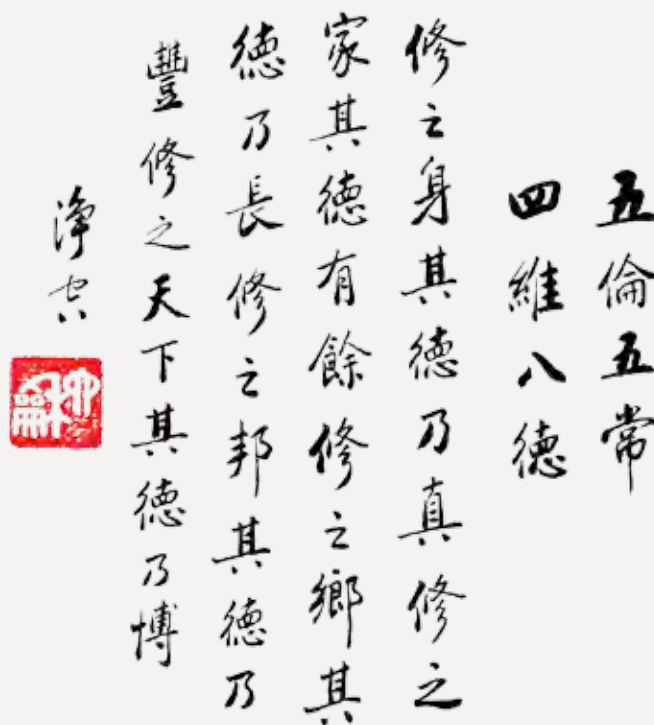 五倫五常
四維八德
修之身其德乃真修之
家其德有餘修之鄉其
德乃長修之邦其德乃
豐修之天下其德乃博
淨空